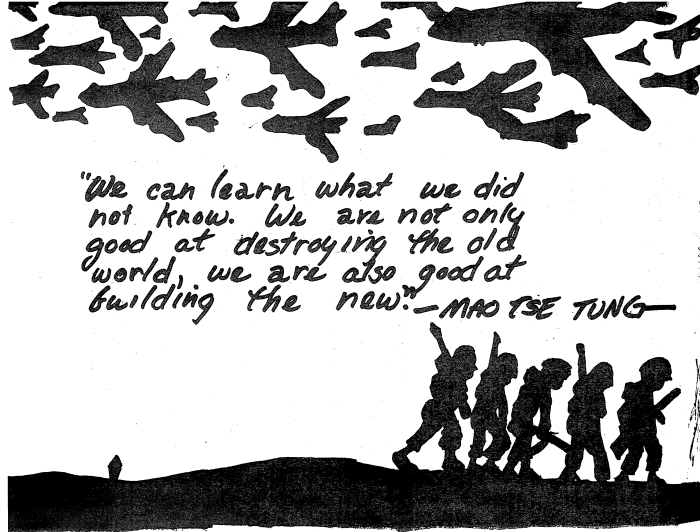 "We can learn what we did
not know. We are not only
good at destroying the old
world, we are also good at
building the new."
—MAO TSE TUNG—